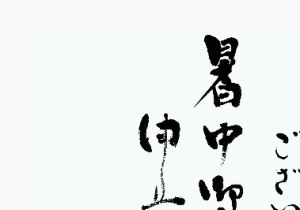 ござい
暑中御
申上